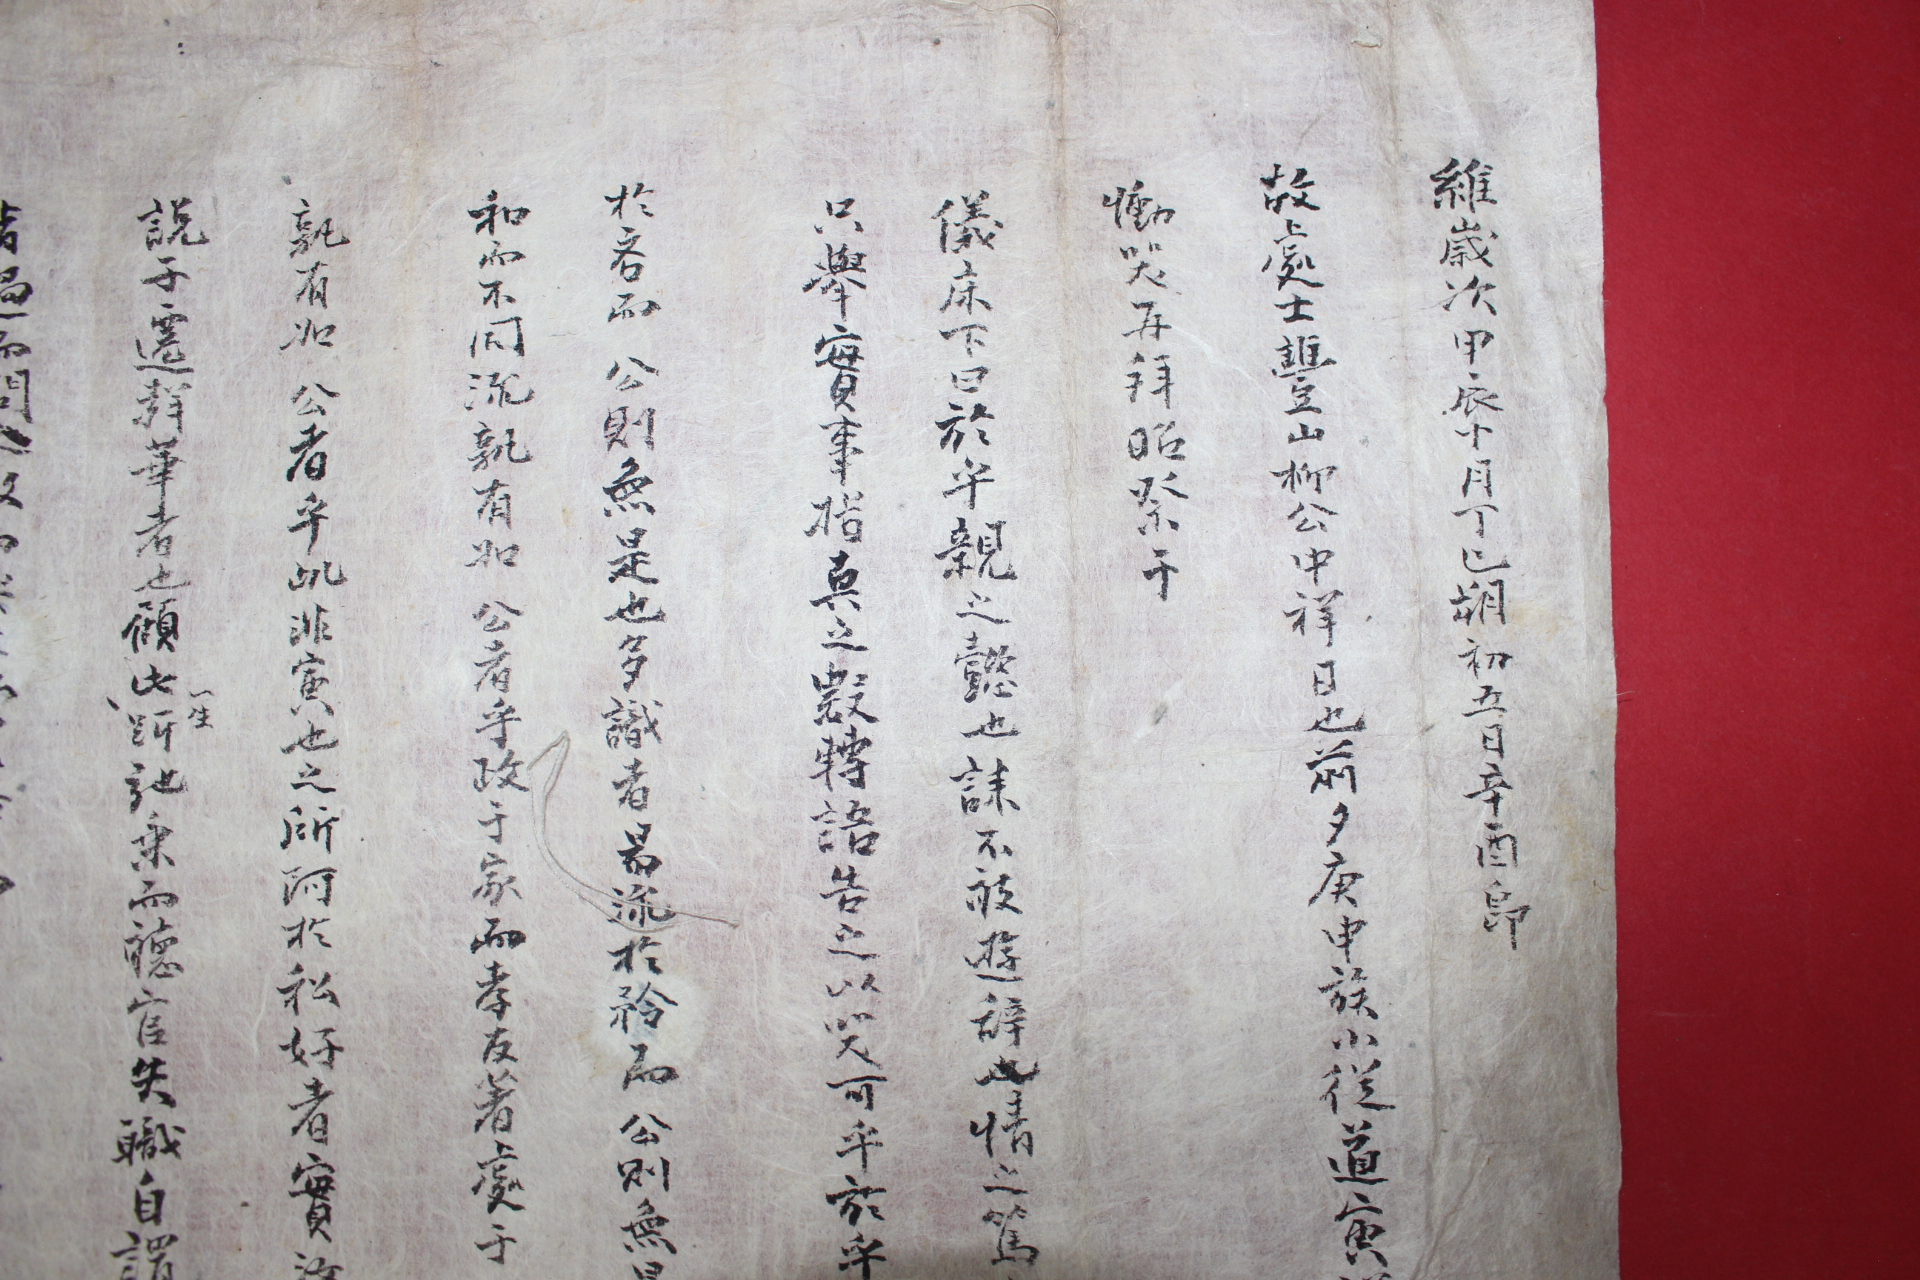 維歲次甲辰十月丁巳朔初五日辛酉卽
故處士豐山柳公中祥日也前夕庚申族小從道寅
慟哭再拜昭祭于
儀床下曰於乎親之懿也誄不敢遊辭也情之篤
只擧實事指真立轉語告之以哭可乎於乎
於吝而 公則無是也多識者易流於矜而 公則無是
和而不同流孰有如 公者乎政于家而孝友著處于
孰有如 公者乎此非寅也之所阿於私好者實
說子遷群華者也顧此一生所乘而德官失職自謂
而問